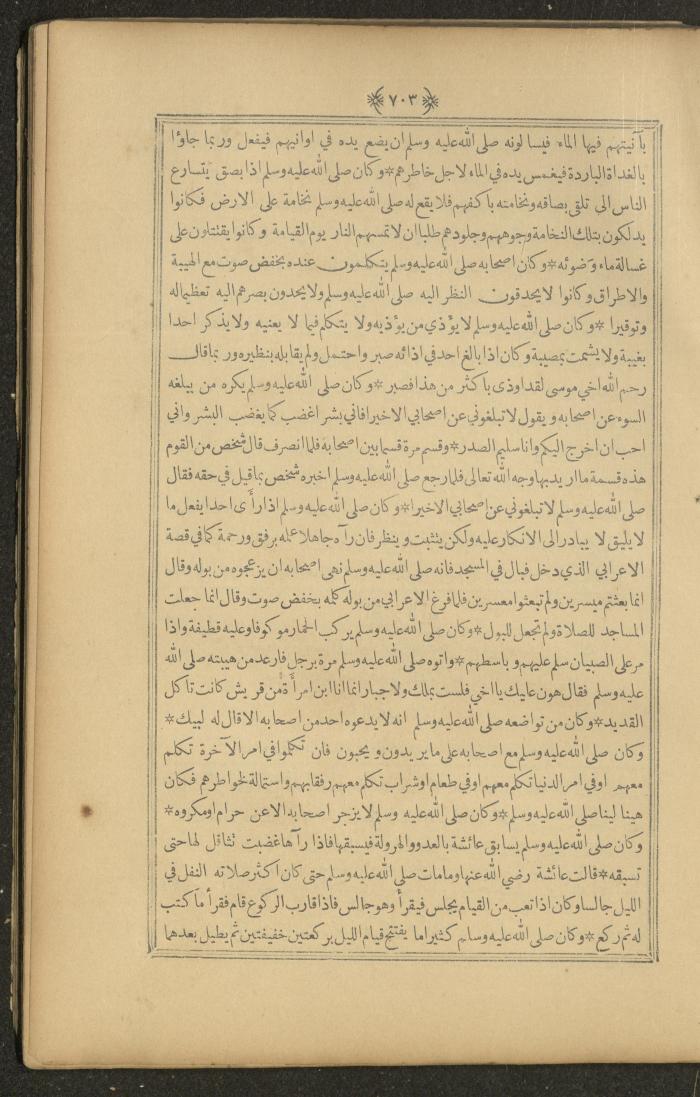 ﴿٧٠٣﴾
بآنيتهم فيها الماء فيسالونه صلى الله عليه وسلم ان يضع يده في اوانيهم فيفعل وربما جاؤا
بالغداة الباردة فيغمس يده في الماء لاجل خاطرهم * وكان صلى الله عليه وسلم اذا بصق يتسارع
الناس الى تلقي بصاقه ونخامته باكفهم فلا يقع له صلى الله عليه وسلم نخامة على الارض فكانوا
يدلكون بتلك النخامة وجوههم وجلودهم طلبا ان لا تمسهم النار يوم القيامة وكانوا يقتتلون على
غسالة ماء وضوئه * وكان اصحابه صلى الله عليه وسلم يتكلمون عنده بخفض صوت مع الهيبة
والاطراق وكانوا لا يحدقون النظر اليه صلى الله عليه وسلم ولا يحدون بصرهم اليه تعظيما له
وتوقيرا * وكان صلى الله عليه وسلم لا يؤذي من يؤذيه ولا يتكلم فيما لا يعنيه ولا يذكر احدا
بغيبة ولا يشمت بمصيبة وكان اذا بالغ احد في اذائه صبر واحتمل ولم يقابله بنظيره وربما قال
رحم الله اخي موسى لقد اوذى باكثر من هذا فصبر * وكان صلى الله عليه وسلم يكره من يبلغه
السوء عن اصحابه ويقول لا تبلغوني عن اصحابي الا خيرا فاني بشر اغضب كما يغضب البشر واني
احب ان اخرج اليكم وانا سليم الصدر * وقسم مرة قسما بين اصحابه فلما انصرف قال شخص من القوم
هذه قسمة ما اريد بها وجه الله تعالى فلما رجع صلى الله عليه وسلم اخبره شخص بما قيل في حقه فقال
صلى الله عليه وسلم لا تبلغوني عن اصحابي الا خيرا * وكان صلى الله عليه وسلم اذا رأى احدا يفعل ما
لا يليق لا يبادر الى الانكار عليه ولكن يتثبت وينظر فان رآه جاهلا علمه برفق ورحمة كما في قصة
الاعرابي الذي دخل فبال في المسجد فانه صلى الله عليه وسلم نهى اصحابه ان يزعجوه من بوله وقال
انما بعثتم ميسرين ولم تبعثوا معسرين فلما فرغ الاعرابي من بوله كلمه بخفض صوت وقال انما جعلت
المساجد للصلاة ولم تجعل للبول * وكان صلى الله عليه وسلم يركب الحمار موكوفا وعليه قطيفة واذا
مر على الصبيان سلم عليهم وباسطهم * واتوه صلى الله عليه وسلم مرة برجل فارعد من هيبته صلى الله
عليه وسلم فقال هون عليك يا اخي فلست بملك ولا جبار انما انا ابن امرأة من قريش كانت تاكل
القديد * وكان من تواضعه صلى الله عليه وسلم انه لا يدعوه احد من اصحابه الا قال له لبيك *
وكان صلى الله عليه وسلم مع اصحابه على ما يريدون ويحبون فان تكلموا في امر الآخرة تكلم
معهم او في امر الدنيا تكلم معهم او في طعام او شراب تكلم معهم رفقا بهم واستمالة لخواطرهم فكان
هينا لينا صلى الله عليه وسلم * وكان صلى الله عليه وسلم لا يزجر اصحابه الا عن حرام او مكروه *
وكان صلى الله عليه وسلم يسابق عائشة بالعدو والهرولة فيسبقها فاذا رآها غضبت تثاقل لها حتى
تسبقه * قالت عائشة رضي الله عنها وما مات صلى الله عليه وسلم حتى كان اكثر صلاته النفل في
الليل جالسا وكان اذا تعب من القيام يجلس فيقرأ وهو جالس فاذا قارب الركوع قام فقرأ ما كتب
له ثم ركع * وكان صلى الله عليه وسلم كثيرا ما يفتتح قيام الليل بركعتين خفيفتين ثم يطيل بعدهما